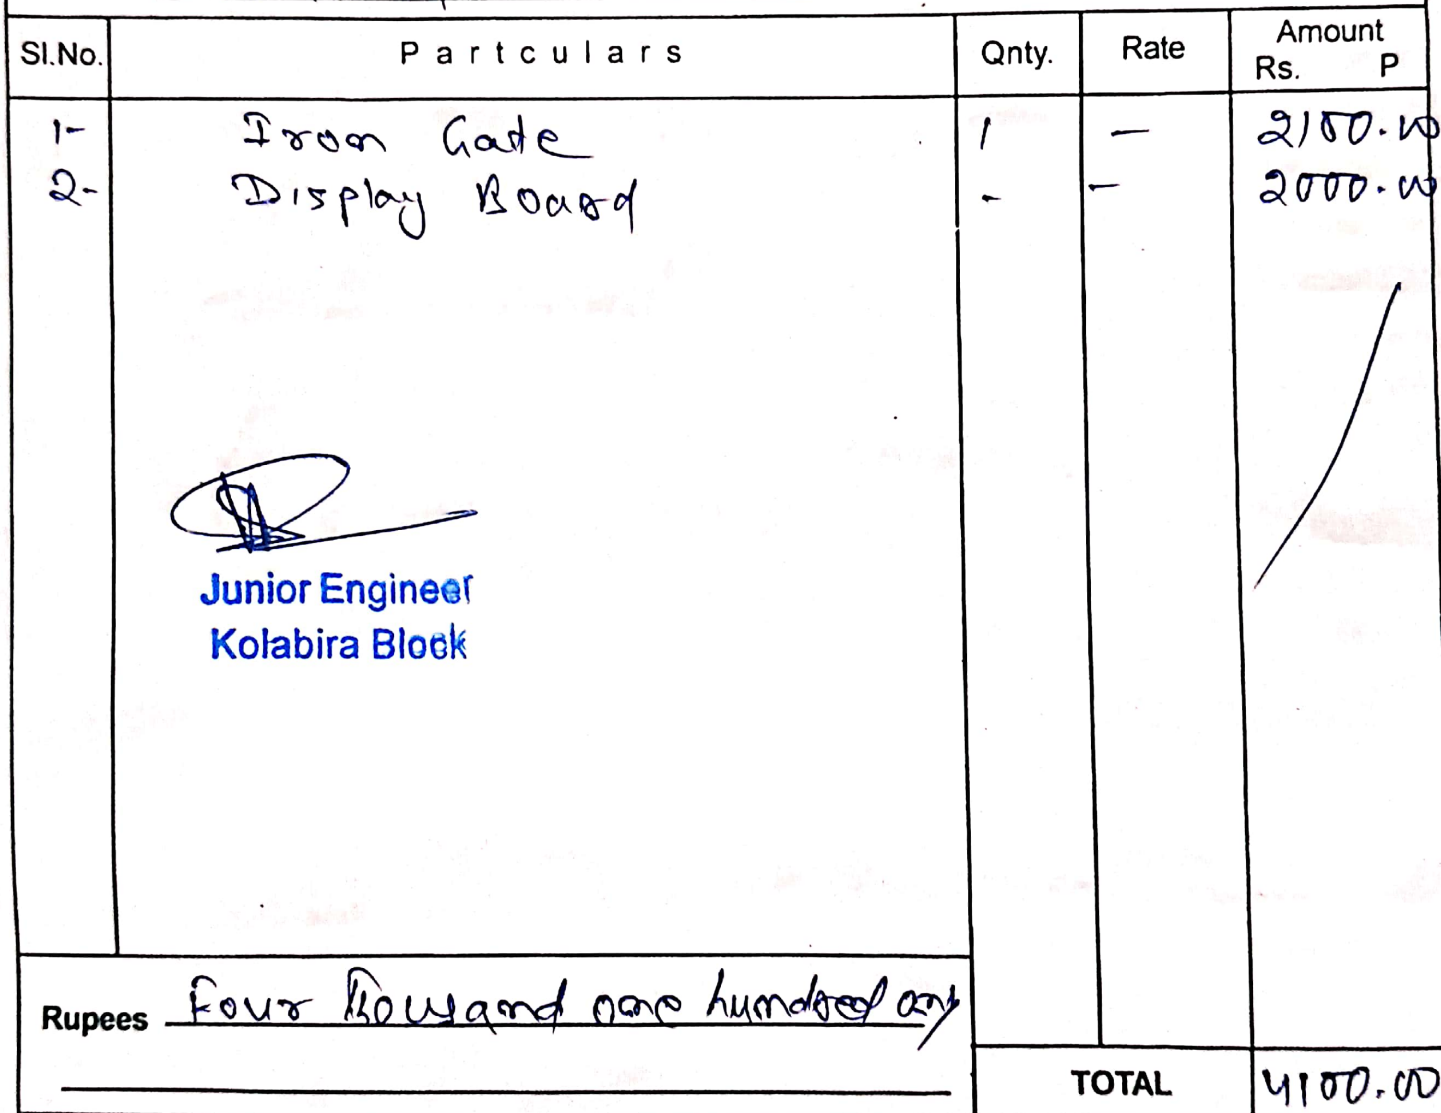 Sl.No. Partculars Qnty. Rate Amount
Rs. P
1- Iron Gate 1 — 2100.00
2- Display Board - — 2000.00
Junior Engineer
Kolabira Block
Rupees Four Thousand one hundred only
TOTAL 4100.00